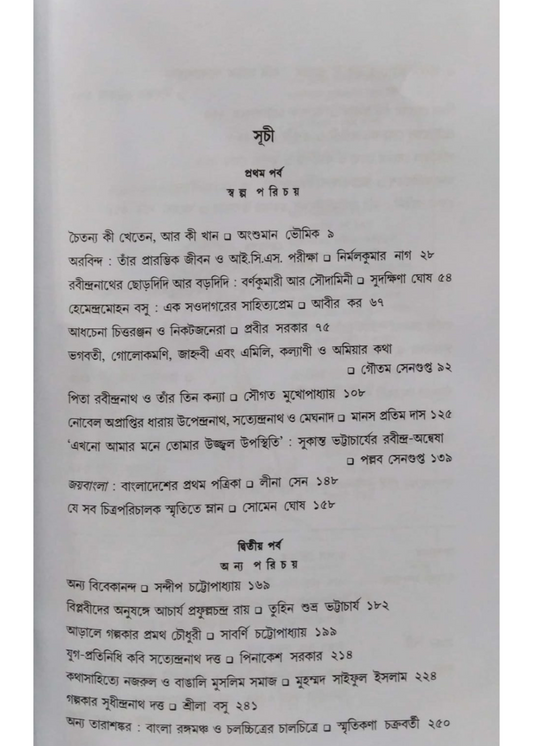 সূচী
প্রথম পর্ব
স্বল্প পরিচয়
চৈতন্য কী খেতেন, আর কী খান □ অংশুমান ভৌমিক ৯
অরবিন্দ : তাঁর প্রারম্ভিক জীবন ও আই.সি.এস. পরীক্ষা □ নির্মলকুমার নাগ ২৮
রবীন্দ্রনাথের ছোড়দিদি আর বড়দিদি : বর্ণকুমারী আর সৌদামিনী □ সুদক্ষিণা ঘোষ ৫৪
হেমেন্দ্রমোহন বসু : এক সওদাগরের সাহিত্যপ্রেম □ আবীর কর ৬৭
আধচেনা চিত্তরঞ্জন ও নিকটজনেরা □ প্রবীর সরকার ৭৫
ভগবতী, গোলোকমণি, জাহ্নবী এবং এমিলি, কল্যাণী ও অমিয়ার কথা
□ গৌতম সেনগুপ্ত ৯২
পিতা রবীন্দ্রনাথ ও তাঁর তিন কন্যা □ সৌগত মুখোপাধ্যায় ১০৮
নোবেল অপ্রাপ্তির ধারায় উপেন্দ্রনাথ, সত্যেন্দ্রনাথ ও মেঘনাদ □ মানস প্রতিম দাস ১২৫
‘এখনো আমার মনে তোমার উজ্জ্বল উপস্থিতি’ : সুকান্ত ভট্টাচার্যের রবীন্দ্র-অন্বেষা
□ পল্লব সেনগুপ্ত ১৩৯
জয়বাংলা : বাংলাদেশের প্রথম পত্রিকা □ লীনা সেন ১৪৮
যে সব চিত্রপরিচালক স্মৃতিতে ম্লান □ সোমেন ঘোষ ১৫৮
দ্বিতীয় পর্ব
অন্য পরিচয়
অন্য বিবেকানন্দ □ সন্দীপ চট্টোপাধ্যায় ১৬৯
বিপ্লবীদের অনুষঙ্গে আচার্য প্রফুল্লচন্দ্র রায় □ তুহিন শুভ্র ভট্টাচার্য ১৮২
আড়ালে গল্পকার প্রমথ চৌধুরী □ সাবর্ণি চট্টোপাধ্যায় ১৯৯
যুগ-প্রতিনিধি কবি সত্যেন্দ্রনাথ দত্ত □ পিনাকেশ সরকার ২১৪
কথাসাহিত্যে নজরুল ও বাঙালি মুসলিম সমাজ □ মুহম্মদ সাইফুল ইসলাম ২২৪
গল্পকার সুধীন্দ্রনাথ দত্ত □ শ্রীলা বসু ২৪১
অন্য তারাশঙ্কর : বাংলা রঙ্গমঞ্চ ও চলচ্চিত্রের চালচিত্রে □ স্মৃতিকণা চক্রবর্তী ২৫০